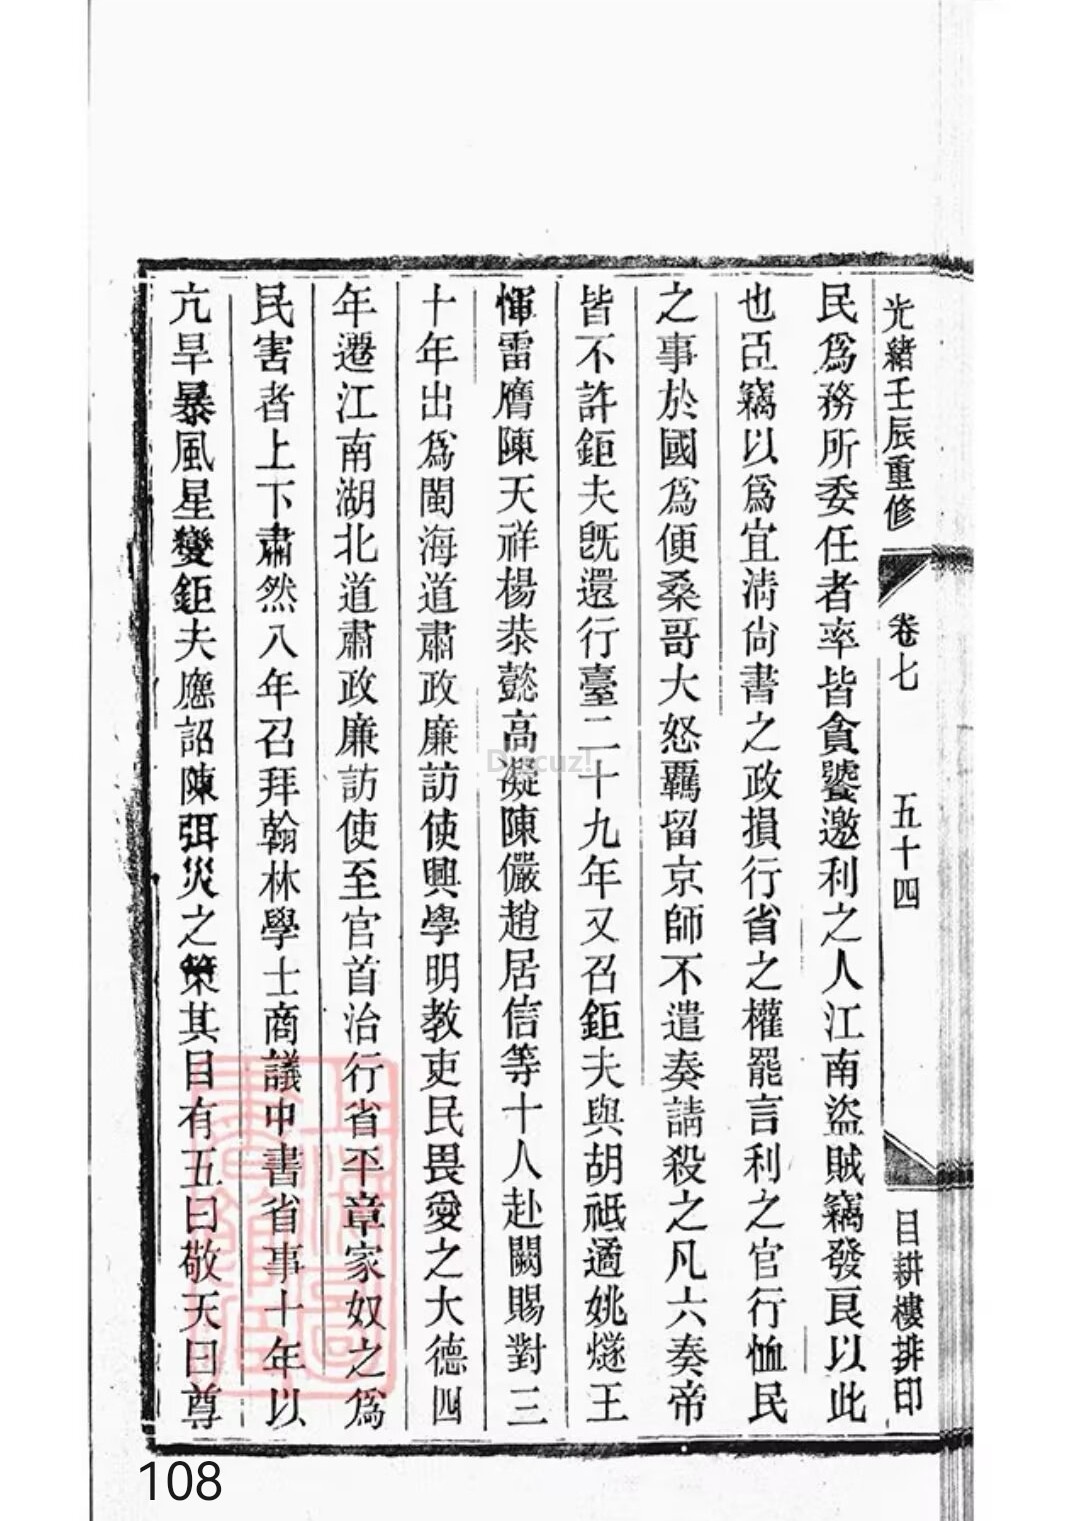 光緒壬辰重修 卷七 五十四 目耕樓排印
民爲務所委任者率皆貪饕邀利之人江南盜賊竊發良以此
也臣竊以爲宜清尙書之政損行省之權罷言利之官行恤民
之事於國爲便桑哥大怒羈留京師不遣奏請殺之凡六奏帝
皆不許鉅夫旣還行臺二十九年又召鉅夫與胡祗遹姚燧王
惲雷膺陳天祥楊恭懿高凝陳儼趙居信等十人赴闕賜對三
十年出爲閩海道肅政廉訪使興學明教吏民畏愛之大德四
年遷江南湖北道肅政廉訪使至官首治行省平章家奴之爲
民害者上下肅然八年召拜翰林學士商議中書省事十年以
亢旱暴風星變鉅夫應詔陳弭災之策其目有五曰敬天曰尊
Discuz!
108